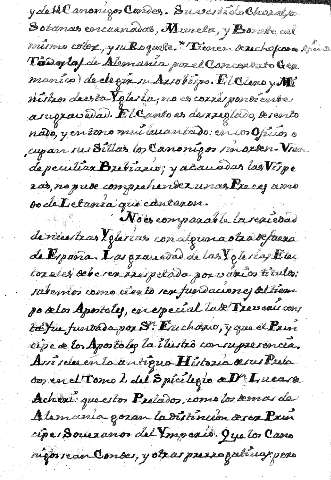 y de 14 Canonigos Condes. Su vestido Choral es
Sotanas encarnadas, Muzeta, y Bonete del
mismo color, y su Roquete. Tienen derecho, como
Todas las de Alemania por el Concordato Ger
manico, de elegir su Arzobispo. El Clero y Mi
nistros de esta Yglesia, no es corréspondiente
a su gravedad. El Canto es desreglado, desento
nado, y en tono mui levantado: en los Oficios o
cupan sus Sillas los Canonigos sin orden. Usan
de peculiar Brebiario; y acavadas las Vispe
ras, no pude comprehender unas Preces a mo
do de Letania que cantaron.
No es comparable la seriedad
de nuestras Yglesias con alguna otra de fuera
de España. La gravedad de las Yglesias Elec
torales debe ser respetada por varios titulos:
sabemos como cierto ser fundaciones del tiem
po de los Apostoles, en especial la de Treveris cons
ta fue fundada por Sn. Euchario, y que el Prin
cipe de los Apostoles la ilustró con su presencia.
Assi se lee en la antigua Historia de sus Prela
dos en el Tomo 1. del Spicilegio de Dn. Lucas de
Acheri: que estos Prelados, como los demas de
Alemania gozan la distincion de ser Prin
cipes Soveranos del Ymperio. Que los Cano
nigos sean Condes, y otras prerrogativas; pero